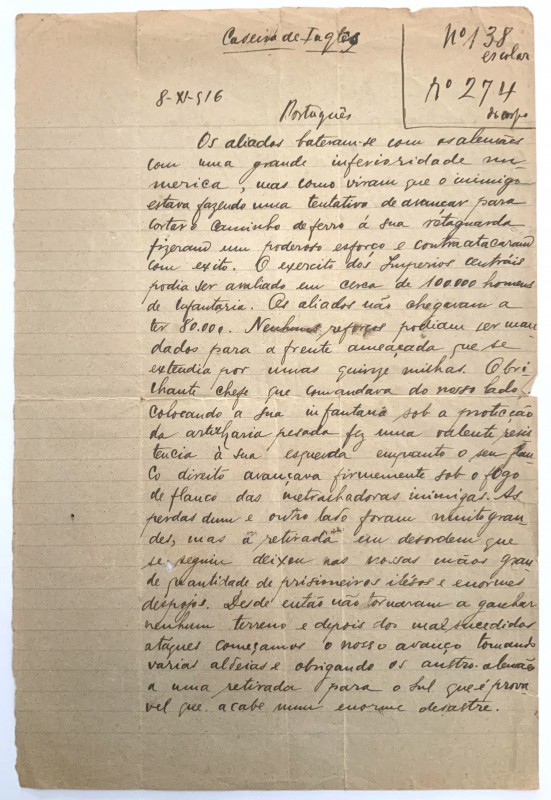 Caseiro de Inglês
Nº 138
escolar
nº 274
do corpo
8-XI-916
Português
Os aliados bateram-se com os alemães
com uma grande inferioridade nu-
merica, mas como viram que o inimigo
estava fazendo uma tentativa de avançar para
cortar o caminho de ferro á sua rétaguarda
fizeram um poderoso esforço e contraatacaram
com exito. O exercito dos Imperios Centráis
podia ser avaliado em cerca de 100.000 homens
de infantaria. Os aliados não chegavam a
ter 80.000. Nenhuns reforços podiam ser man
dados para a frente ameaçada que se
extendia por umas quinze milhas. O bri
lhante chefe que comandava do nosso lado,
colocando a sua infantaria sob a protecção
da artilharia pesada fez uma valente resis
tencia à sua esquerda emquanto o seu flan
co direito avançava firmemente sob o fogo
de flanco das metralhadoras inimigas. As
perdas dum e outro lado foram muito gran
des, mas a retirada em desordem que
se seguiu deixou nas nossas mãos gran
de quantidade de prisioneiros ilésos e enormes
despojos. Desde então não tornaram a ganhar
nenhum terreno e depois dos mal sucedidos
ataques começamos o nosso avanço tomando
varias aldeias e obrigando os austro-alemão
a uma retirada para o sul que é prova
vel que acabe num enorme desastre.